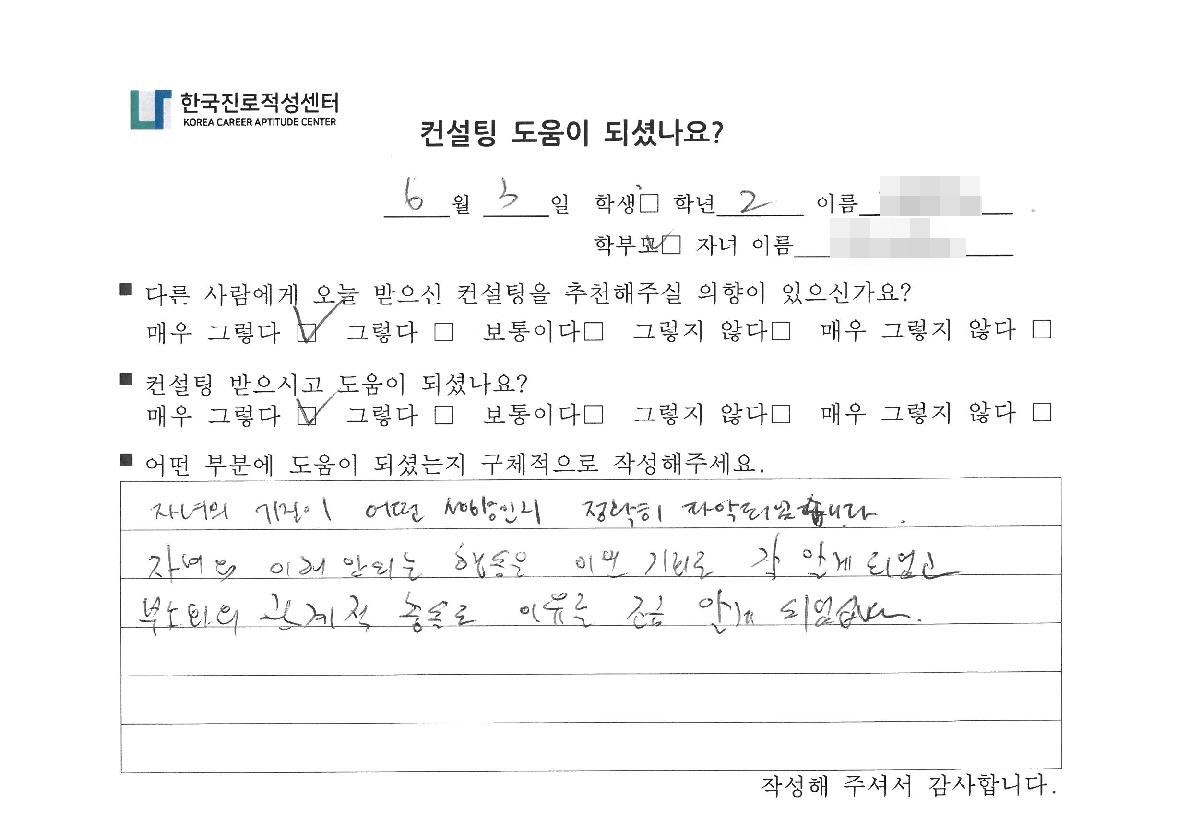 한국진로적성센터
KOREA CAREER APTITUDE CENTER
컨설팅 도움이 되셨나요?
6 월 3 일 학생□ 학년 2 이름
학부모☑ 자녀 이름
■ 다른 사람에게 오늘 받으신 컨설팅을 추천해주실 의향이 있으신가요?
매우 그렇다 ☑ 그렇다 □ 보통이다□ 그렇지 않다□ 매우 그렇지 않다 □
■ 컨설팅 받으시고 도움이 되셨나요?
매우 그렇다 ☑ 그렇다 □ 보통이다□ 그렇지 않다□ 매우 그렇지 않다 □
■ 어떤 부분에 도움이 되셨는지 구체적으로 작성해주세요.
자녀의 기질이 어떤 성향인지 정확히 파악되었습니다.
자녀의 이해 안되는 행동을 이번 기회로 잘 알게 되었고
부모와의 관계적 충돌로 이유를 조금 알게 되었습니다.
작성해 주셔서 감사합니다.